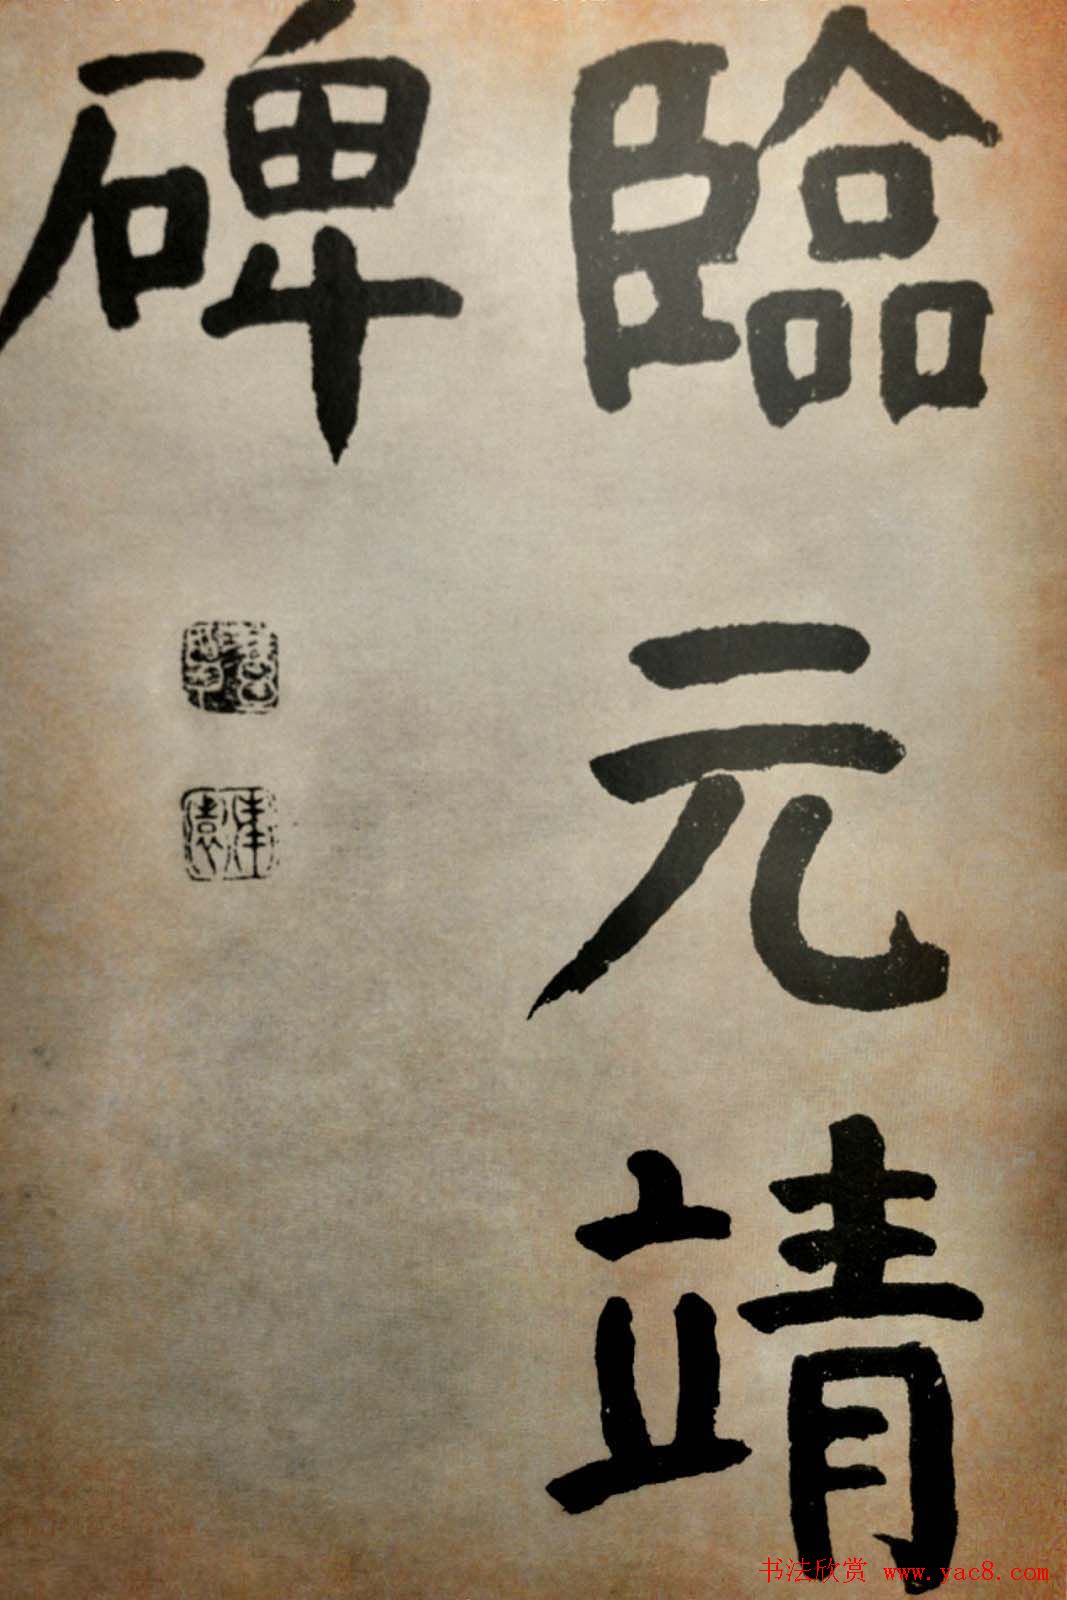 臨元靖
碑
书法欣赏 www.yac8.com